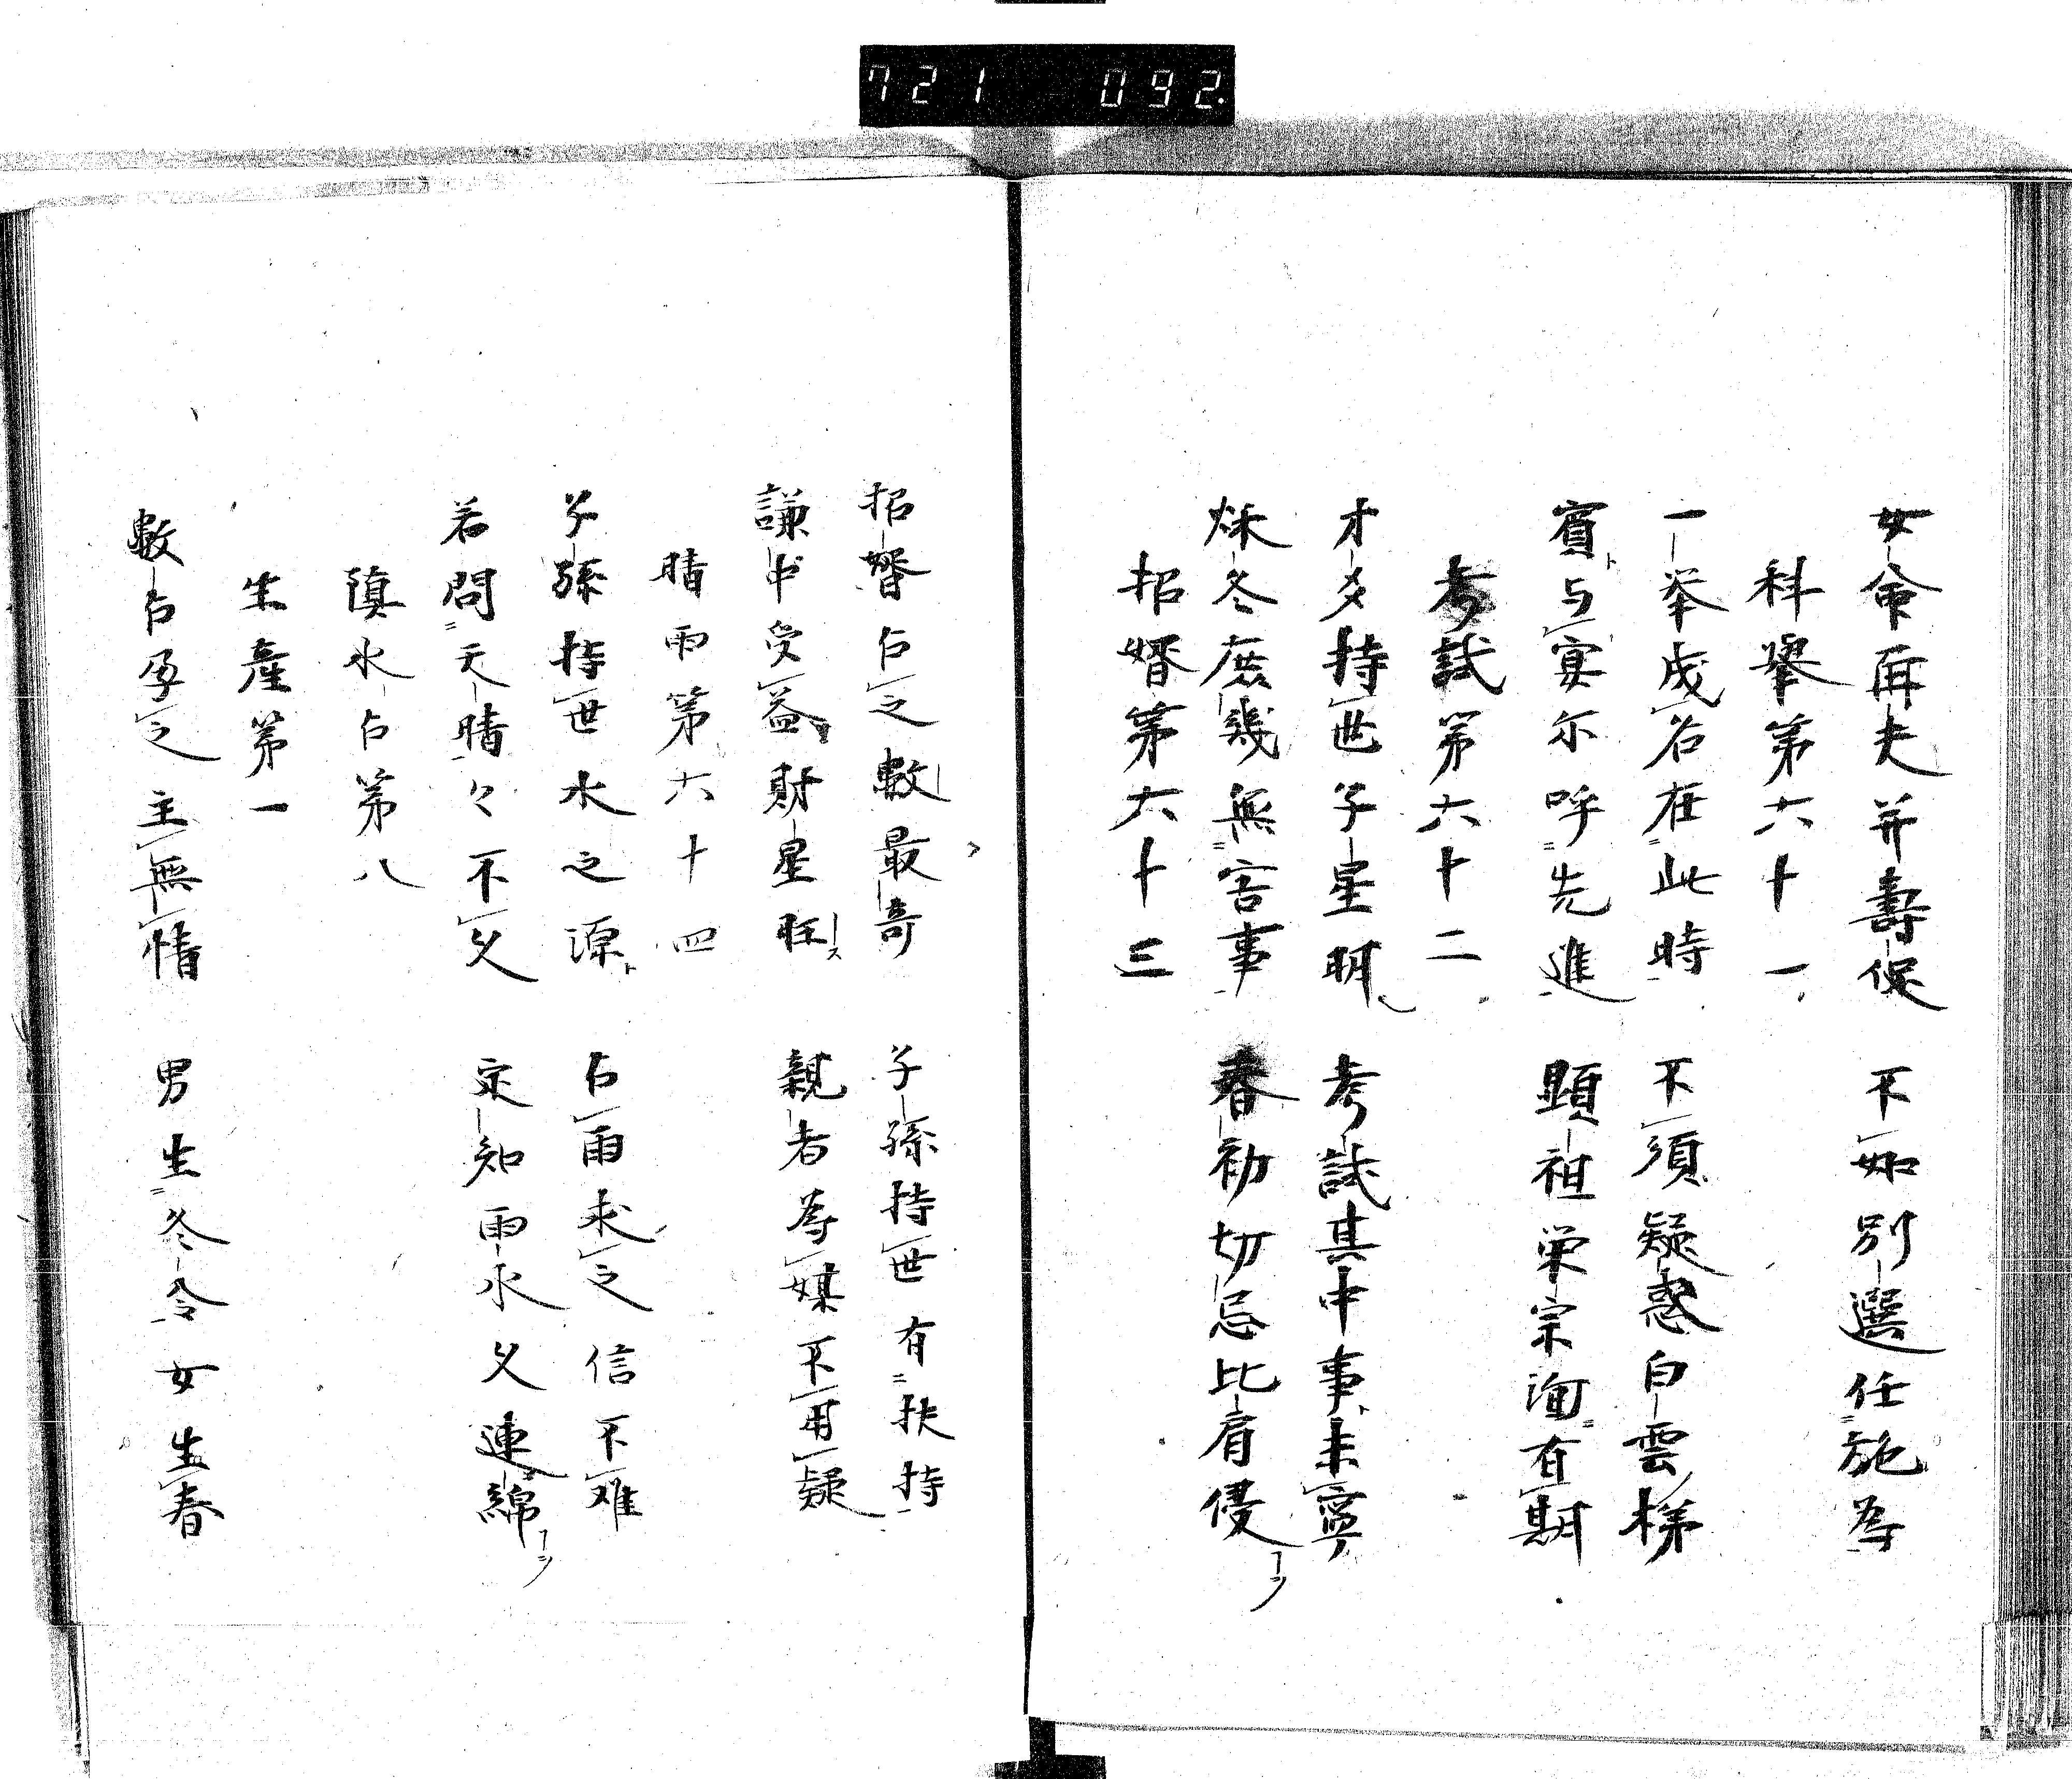 721 092.
女命再夫并壽促 不如別選任施為
科擧第六十一
一挙成名在此時 不須疑惑白雲梯
賓与宴尓呼先進 顕祖栄宗洵有期
考試第六十二
才多持世子星明 考試其中事未寧
秌冬庶幾無害事 春初切忌比肩侵
招婿第六十三
招婿占之數最奇 子孫持世有扶持
謙中受益財星旺 親者為媒不用疑
晴雨第六十四
子孫持世水之源 占雨求之信不难
若問天晴々不久 定知雨水久連綿
鎮水占第八
生産第一
數占孕之主無情 男生冬令女生春